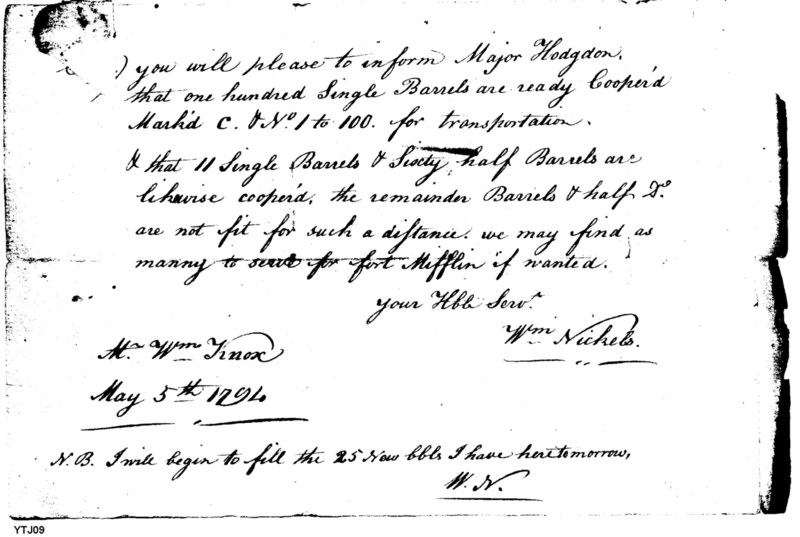 ) you will please to inform Major Hodgdon,
that one hundred Single Barrels are ready Cooper'd
Mark'd C. & No. 1 to 100. for transportation.
& that 11 Single Barrels & Sixty half Barrels are
likewise cooper'd, the remainder Barrels & half Do.
are not fit for such a distance. we may find as
manny to serve for fort Mifflin if wanted.
your Hble Servt.
Wm Nickels.
Mr. Wm Knox
May 5th 1794
N.B. I will begin to fill the 25 New bbls I have here tomorrow,
W. N.
YTJ09